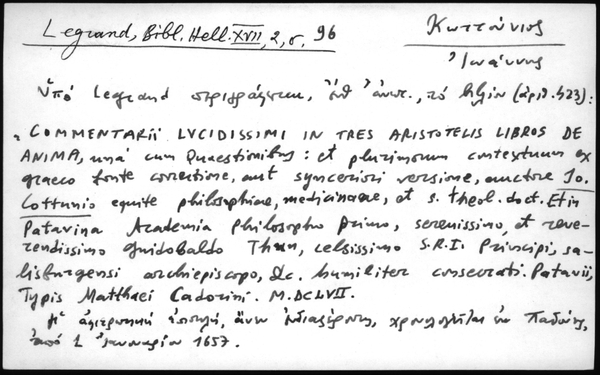 Legrand, Bibl. Hell. XVII, 2, σ. 96
Κωττούνιος
Ἰωάννης
Ὑπὸ Legrand περιγράφεται, ἔνθ' ἀνωτ., τὸ βιβλίον (ἀριθ. 423):
"COMMENTARII LVCIDISSIMI IN TRES ARISTOTELIS LIBROS DE
ANIMA, unà cum Quaestionibus: et plurimorum contextuum ex
graeco fonte correctione, aut synceriori versione, auctore Jo.
Cottunio equite philosophiae, medicinaeae, et s. theol. doct. Et in
Patavina Academia Philosopho primo, serenissimo, et reve-
rendissimo Guidobaldo Thun, celsissimo S.R.I. Principi, sa-
lisburgensi archiepiscopo, &c. humiliter consecrati. Patavii,
Typis Matthaei Cadorini. M.DCLVII.
Ἡ ἀφιερωτικὴ ἐπιστολή, ἄνευ ἐνδιαφέροντος, χρονολογεῖται ἐν Παδούῃ,
ἀπὸ 1 Ἰανουαρίου 1657.